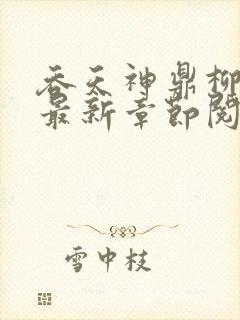 吞天神鼎柳
最新章節閱
雪中枝